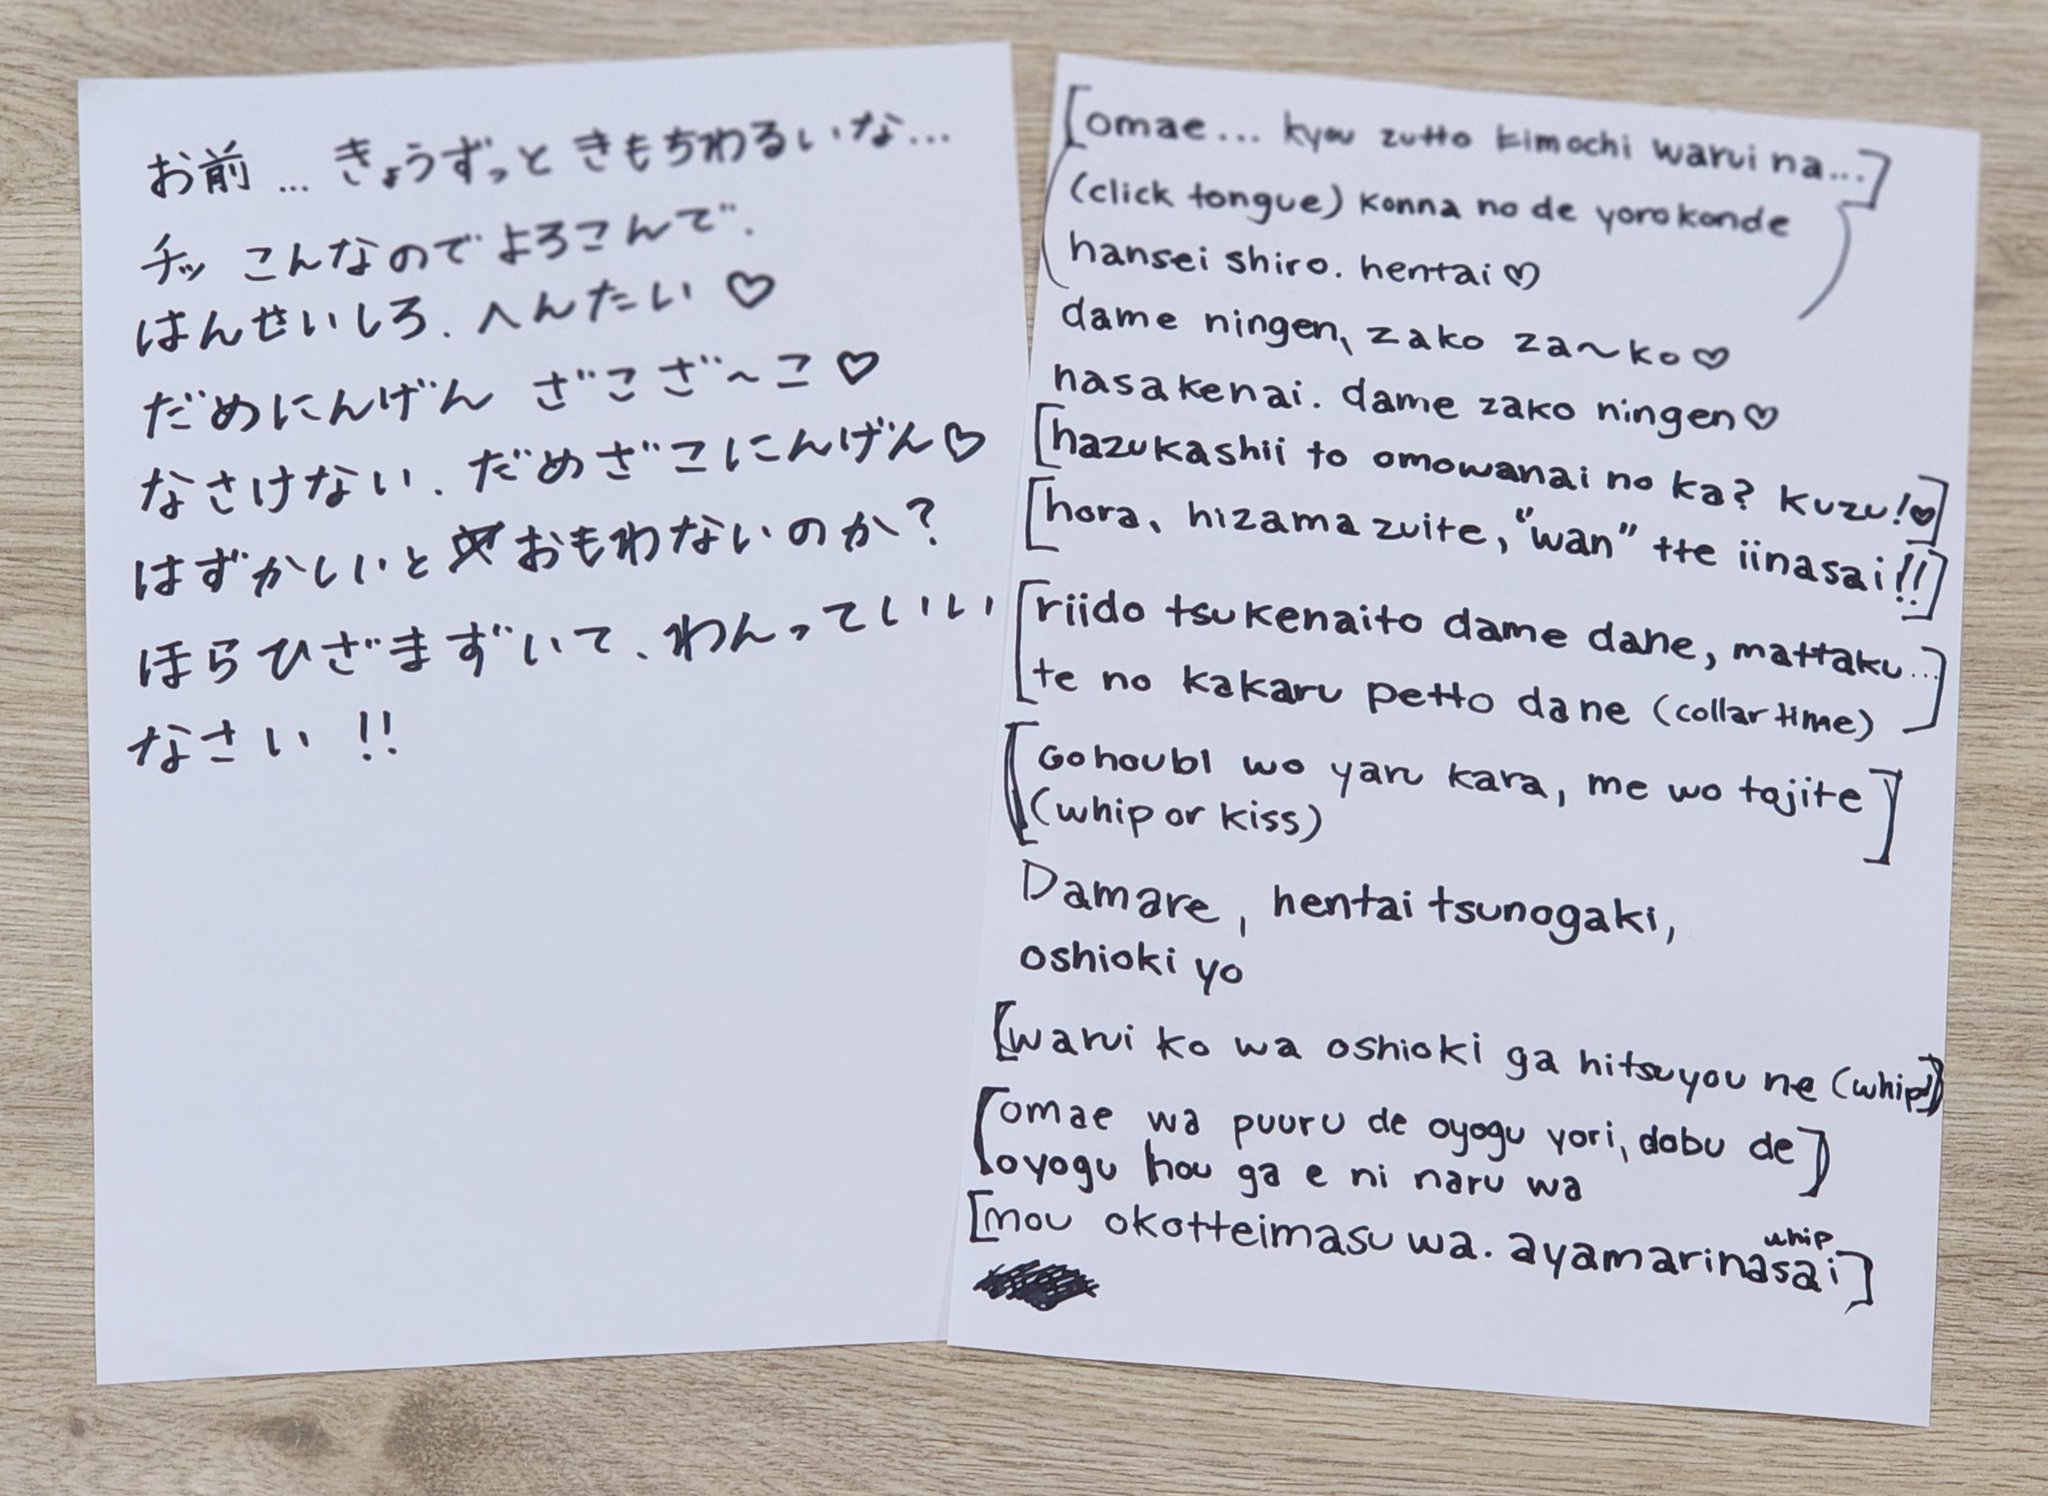 お前... きょうずっときもちわるいな...
チッ こんなのでよろこんで.
はんせいしろ. へんたい♡
だめにんげん ざこざ〜こ♡
なさけない. だめざこにんげん♡
はずかしいと おもわないのか?
ほらひざまずいて、わんっていい
なさい !!
[omae... kyou zutto kimochi warui na...]
(click tongue) konna no de yorokonde
hansei shiro. hentai♡
dame ningen、zako za~ko♡
nasakenai. dame zako ningen♡
[hazukashii to omowanai no ka? kuzu!♡]
[hora、hizamazuite, "wan" tte iinasai!!]
[riido tsukenaito dame dane, mattaku...
te no kakaru petto dane (collar time)]
[Gohoubi wo yaru kara, me wo tojite
(whip or kiss)]
Damare, hentai tsunogaki,
oshioki yo
[warui ko wa oshioki ga hitsuyou ne (whip)]
[omae wa puuru de oyogu yori, dobu de
oyogu hou ga e ni naru wa]
[mou okotteimasu wa. ayamarinasai whip]